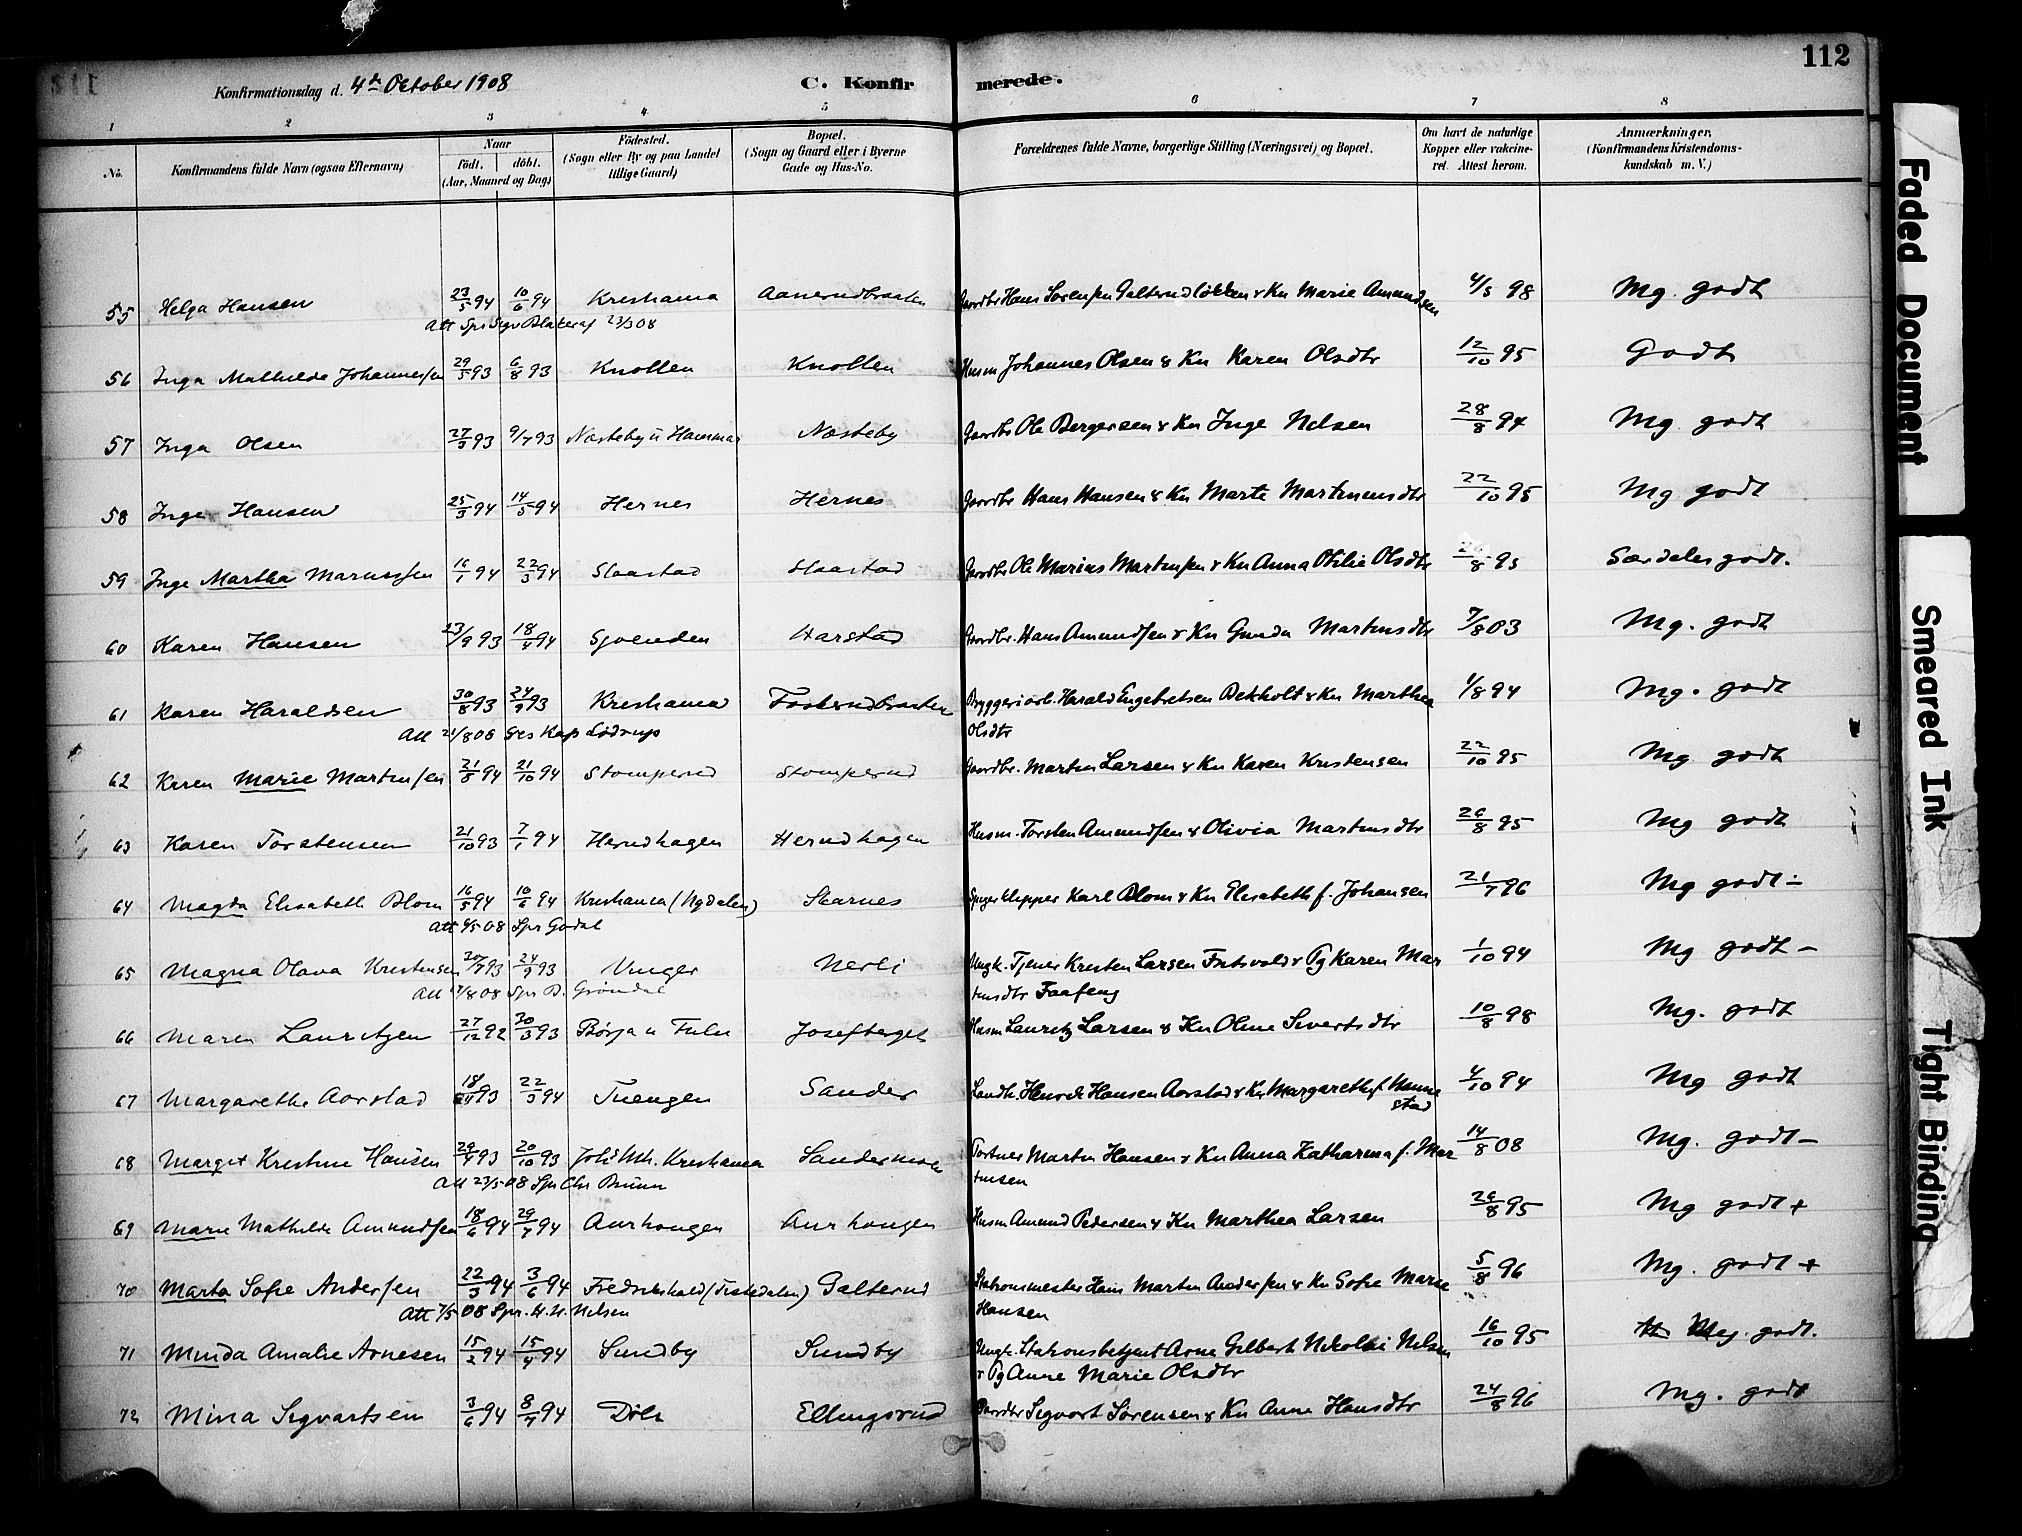 112
Konfirmationsdag d. 4de October 1908 C. Konfirmerede.
1 2 3 4 5 6 7 8
No. Konfirmandens fulde Navn (ogsaa Efternavn) Naar födt. döbt. (Aar, Maaned og Dag) Födested. (Sogn eller By og paa Landet tillige Gaard) Bopæl. (Sogn og Gaard eller i Byerne Gade og Hus-No. Forældrenes fulde Navne, borgerlige Stilling (Næringsvei) og Bopæl. Om havt de naturlige Kopper eller vakcineret. Attest herom. Anmærkninger. (Konfirmandens Kristendomskundskab m. V.)
55 Helga Hansen 23/5 94 10/6 94 Kristiania Aanerudbraaten Gaardbr Hans Sørensen Galterudløkken & Kn Marie Amundsen 4/5 98 Mg. godt
Att Spr 23/3 08
56 Inga Mathilde Johannessen 29/5 93 6/8 93 Knollen Knollen Husm Johannes Olsen & Kn Karen Olsdtr 12/10 95 Godt
57 Inga Olsen 27/3 93 9/7 93 Næsteby Næsteby Gaardbr Ole Bergersen & Kn Inge Nilsen 28/8 94 Mg godt
58 Inga Hansen 25/3 94 14/5 94 Hernes Hernes Gaardbr Hans Hansen & Kn Marte Martinusdtr 22/10 95 Mg godt
59 Inga Martha Mariussen 16/1 94 22/3 94 Slaastad Slaastad Gaardbr Ole Marius Martinsen & Kn Anna Otilie Olsdtr /8 95 Særdeles godt.
60 Karen Hansen 23/9 93 18/4 94 Sjøenden Harstad Gaardbr. Hans Amundsen & Kn Gunda Martinsdtr 7/8 03 Mg. godt
61 Karen Haraldsen 30/8 93 24/9 93 Kristiania Fosserudbraaten Bryggeriarb. Harald Engebretsen Dekholt & Kn Marthea 1/8 94 Mg. godt
Att 21/8 08 Res Kap Lødrup Olsdtr
62 Karen Marie Martinsen 21/8 94 21/10 94 Stomperud Stomperud Gaardbr. Martin Larsen & Kn Karen Kristensen 22/10 95 Mg godt
63 Karen Torstensen 21/10 93 7/1 94 Herudhagen Herudhagen Husm. Torsten Amundsen & Olivia Martinsdtr 26/8 95 Mg godt
64 Magda Elisabeth Blom 16/5 94 10/6 94 Kristiania (Nydalen) Skarnes Spigerklipper Karl Blom & Kn Elisabeth f. Johansen 21/7 96 Mg godt ÷
Att 4/5 08 Spr Godal
65 Magna Olava Kristensen 20/7 93 24/9 93 Vinger Nerli Ungk. Tjener Kristen Larsen Fritsvold & Pg Karen Mar 1/10 94 Mg godt -
Att /8 08 Spr B. Grøndal tinsdtr Faafeng
66 Maren Lauritzen 27/12 92 30/3 93 Børja Josefberget Husm Lauritz Larsen & Kn Oline Sivertsdtr 10/8 98 Mg. godt
67 Margarethe Aarstad 18/11 93 22/3 94 Tuengen Sander Landh. Henrik Hansen Aarstad & Kn Margarethe f. Hanne 4/10 94 Mg godt
stad
68 Margit Kristine Hansen 29/7 93 20/10 93 Joh Mk. Kristiania Sandermoen Portner Martin Hansen & Kn Anna Katharina f. Mar 14/8 08 Mg. godt -
Att 23/5 08 Spr Chr Bruun tinsen
69 Marie Mathilde Amundsen 18/6 94 29/7 94 Aurhougen Aurhougen Husm Amund Pedersen & Kn Marthea Larsen 26/8 95 Mg godt +
70 Marta Sofie Andersen 22/3 94 3/6 94 Fredrikshald (Tistedalen) Galterud Stationsmester Hans Martin Andersen & Kn Sofie Marie 5/8 96 Mg. godt +
Att 7/5 08 Spr. H. H. Nilsen Hansen
71 Minda Amalie Arnesen 15/2 94 15/4 94 Sundby Sundby Ungk. Stationsbetjent Arne Gilbert Nikolai Nilsen 16/10 95 Meg. godt.
& Pg Anne Marie Olsdtr
72 Mina Sigvartsen 3/6 94 8/7 94 Døli Ellingsrud Gaardbr Sigvart Sørensen & Kn Anne Hansdtr 24/8 96 Mg. godt
Faded Document
Smeared Ink
Tight Binding